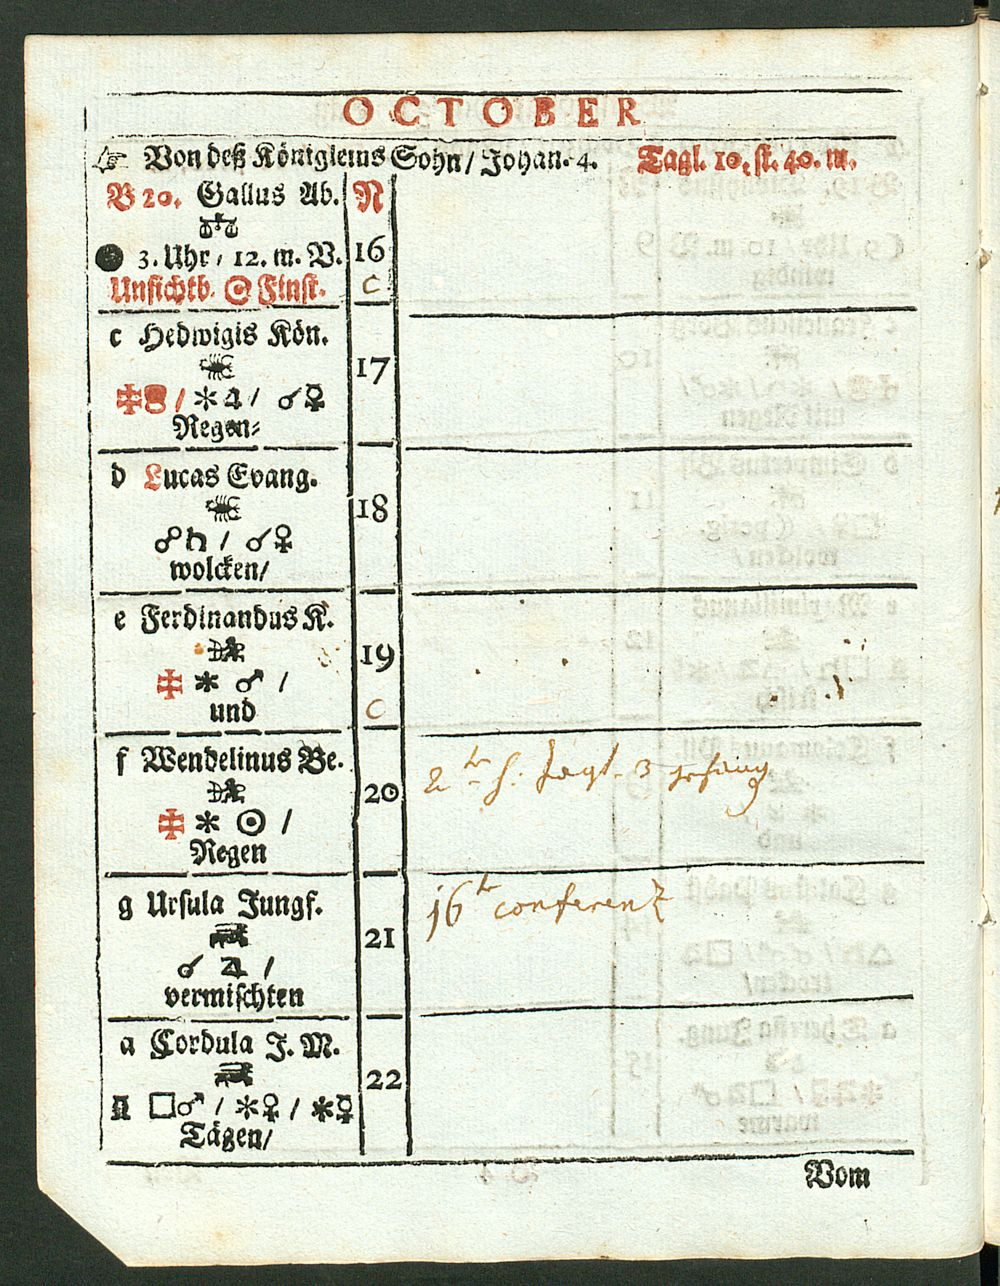 OCTOBER
☞ Von deß Königleins Sohn / Johan. 4. Tagl. 10. st. 40. m.
B 20. Gallus Ab. N
♎
● 3. Uhr, 12. m. V. 16
Unsichtb. ☉ Finst. C
c Hedwigis Kön.
♏ 17
✠ / ✱ ♃ / ☌ ☿
Regen-
d Lucas Evang.
♏ 18
☍ ♄ / ☌ ♀
wolcken /
e Ferdinandus K.
♐ 19
✠ ✱ ♂ /
und C
f Wendelinus Be.
♐ 20 2te h. Jagt. 3
✠ ✱ ☉ /
Regen
g Ursula Jungf. 16te conferenz
♑ 21
☌ ♃ /
vermischten
a Cordula J. M.
♑ 22
□ ♂ / ✱ ♀ / ✱ ☿
Tägen /
Vom